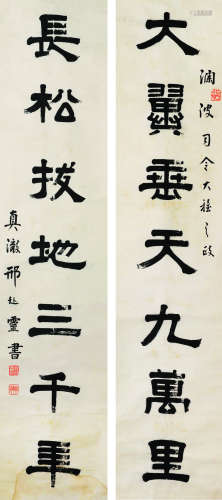 大翼垂天九萬里
瀾波司令大雅之政
長松拔地三千年
真澈邢越靈書